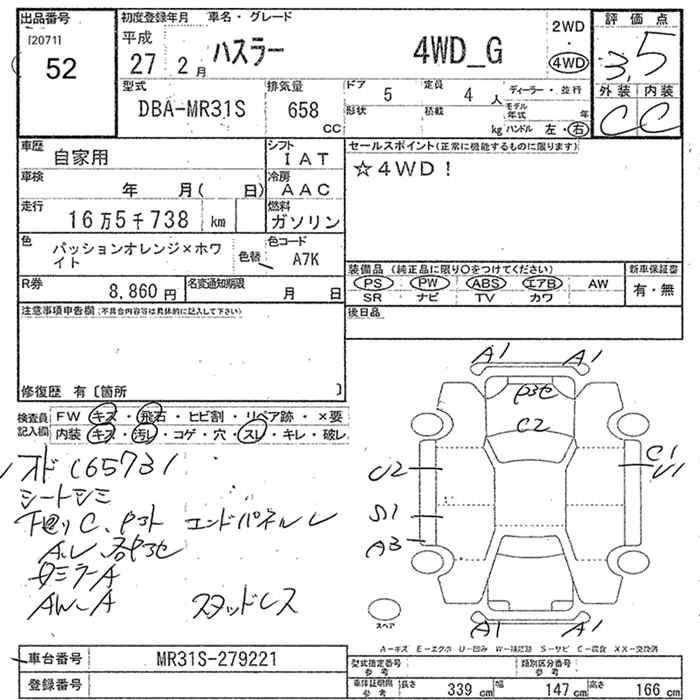 出品番号 初度登録年月 車名・グレード 評価点
[2071] 平成 2WD
52 27 2月 ハスラー 4WD_G ・ 3.5
4WD
型式 排気量 ドア 5 定員 4人 ディーラー・並行 外装 内装
DBA-MR31S 658 CC 形状 積載 kg モデル年式 年 C C
ハンドル 左・右
車歴 自家用 シフト IAT セールスポイント(正常に機能するものに限ります)
車検 年 月( 日) 冷房 AAC ☆4WD!
走行 16万5千738 km 燃料 ガソリン
色 パッションオレンジ×ホワイト 色替 色コード A7K
装備品 (純正品に限り○をつけてください) 新車保証書
R券 8,860円 名変通知期限 月 日 PS・PW・ABS・エアB・AW 有・無
SR ナビ TV カワ
注意事項申告欄(不具合内容等は具体的に記入して下さい) 後日品
修復歴 有〔箇所 〕
検査員記入欄 FW キズ・飛石・ヒビ割・リペア跡・×要
内装 キズ・汚レ・コゲ・穴・スレ・キレ・破レ
オド165731
シートシミ
下廻りC、 エンドパネルレ
ミラーA
AW-A スタッドレス
A1 A1
C2
U2 C1
U1
S1
A3
A1 A1
スペア
A-キズ E-エクボ U-凹み W-補修跡 S-サビ C-腐食 XX-交換済
車台番号 MR31S-279221 型式指定番号 参考 類別区分番号 参考
登録番号 車体証明用 参考 長さ 339cm 幅 147cm 高さ 166cm